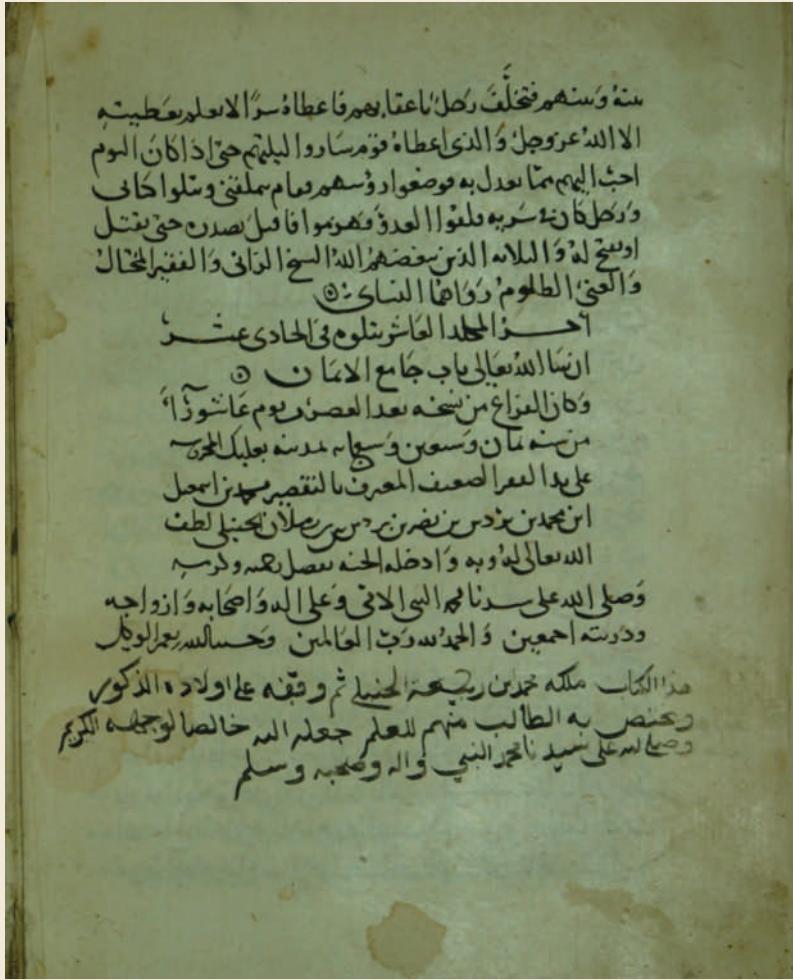 بينه وبينهم فتخلف رجل باعقابهم فاعطاه سرا لا يعلم بعطيته
الا الله عز وجل والذي اعطاه وقوم ساروا ليلتهم حتى اذا كان النوم
احب اليهم مما يعدل به فوضعوا رؤسهم فقام يتملقني ويتلوا اياتي
ورجل كان في سرية فلقوا العدو فهزموا فاقبل بصدره حتى يقتل
او يفتح له والثلاثة الذين يبغضهم الله الشيخ الزاني والفقير المختال
والغني الظلوم رواهما النسائي
اخر المجلد العاشر يتلوه في الحادي عشر
ان شا الله تعالى باب جامع الايمان
وكان الفراغ من نسخه بعد العصر من يوم عاشوراء
من سنه ثمان وسبعين وسبعمايه بمدينه بعلبك المحروسه
على يد الفقير الضعيف المعترف بالتقصير محمد بن اسمعيل
ابن محمد بن بردس بن نصر بن بردس بن رسلان الحنبلي لطف
الله تعالى له وبه وادخله الجنه بفضل رحمته وكرمه
وصلى الله على سيدنا محمد النبي الامي وعلى اله واصحابه وازواجه
وذريته اجمعين والحمد لله رب العالمين وحسبنا الله ونعم الوكيل
هذا الكتاب ملكه حمد بن ربيعة الحنبلي ثم وقفه على اولاده الذكور
ويختص به الطالب منهم للعلم جعله الله خالصا لوجهه الكريم
وصلى الله على سيدنا محمد النبي واله وصحبه وسلم